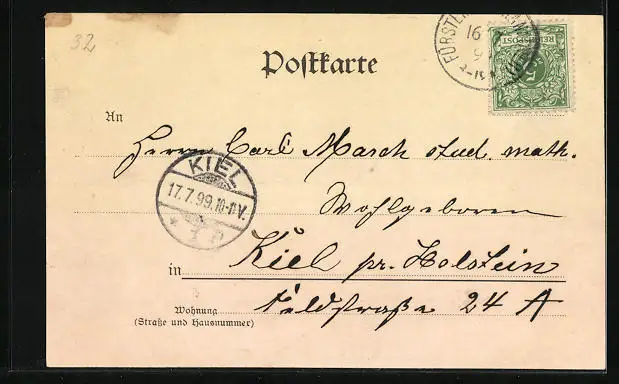 32
Postkarte
REICHSPOST
5
16
9
FÜRSTEN
An
Herrn Carl Marsch stud. math.
KIEL
17.7.99.10-11V.
Wohlgeboren
in Kiel pr. Holstein
Wohnung
(Straße und Hausnummer)
Feldstraße 24 A